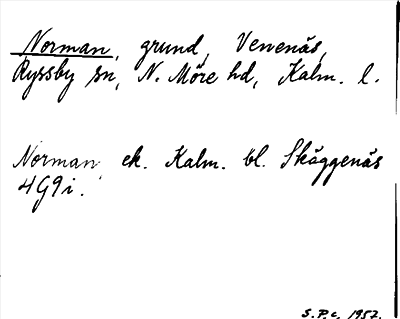 Norman, grund, Venenäs,
Ryssby sn, N. Möre hd, Kalm. l.
Norman ek. Kalm. bl. Skäggenäs
4G9i.
S.P.c. 1957.